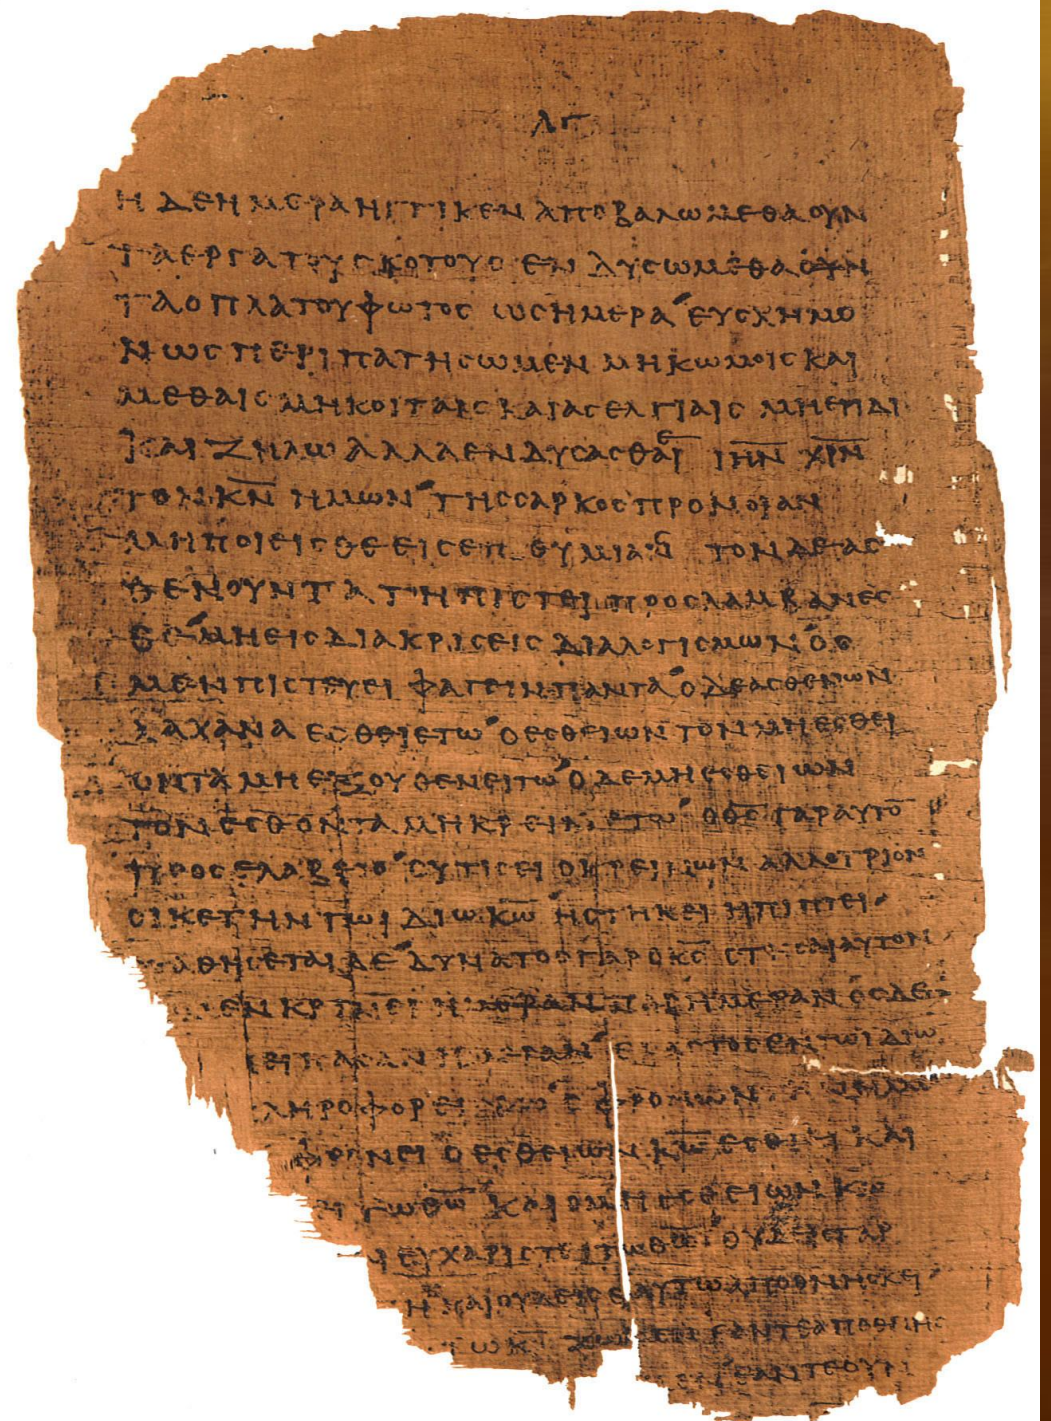 ΛΓ
Η ΔΕ ΗΜΕΡΑ ΗΓΓΙΚΕΝ ΑΠΟΒΑΛΩΜΕΘΑ ΟΥΝ
ΤΑ ΕΡΓΑ ΤΟΥ ΣΚΟΤΟΥΣ ΕΝΔΥΣΩΜΕΘΑ ΟΥΝ
ΤΑ ΟΠΛΑ ΤΟΥ ΦΩΤΟΣ ΩΣ ΗΜΕΡΑ ΕΥΣΧΗΜΟ
ΝΩΣ ΠΕΡΙΠΑΤΗΣΩΜΕΝ ΜΗ ΚΩΜΟΙΣ ΚΑΙ
ΜΕΘΑΙΣ ΜΗ ΚΟΙΤΑΙΣ ΚΑΙ ΑΣΕΛΓΙΑΙΣ ΜΗ ΕΡΙΔΙ
ΚΑΙ ΖΗΛΩ ΑΛΛΑ ΕΝΔΥΣΑΣΘΑΙ ΙΗΝ ΧΡΝ
ΤΟΝ ΚΝ ΗΜΩΝ ΤΗΣ ΣΑΡΚΟΣ ΠΡΟΝΟΙΑΝ
ΜΗ ΠΟΙΕΙΣΘΕ ΕΙΣ ΕΠΙΘΥΜΙΑΣ ΤΟΝ ΔΕ ΑΣ
ΘΕΝΟΥΝΤΑ ΤΗ ΠΙΣΤΕΙ ΠΡΟΣΛΑΜΒΑΝΕΣ
ΘΕ ΜΗ ΕΙΣ ΔΙΑΚΡΙΣΕΙΣ ΔΙΑΛΟΓΙΣΜΩΝ ΟΣ
ΜΕΝ ΠΙΣΤΕΥΕΙ ΦΑΓΕΙΝ ΠΑΝΤΑ Ο ΔΕ ΑΣΘΕΝΩΝ
ΛΑΧΑΝΑ ΕΣΘΕΙΕΤΩ Ο ΕΣΘΕΙΩΝ ΤΟΝ ΜΗ ΕΣΘΕΙ
ΟΝΤΑ ΜΗ ΕΞΟΥΘΕΝΕΙΤΩ Ο ΔΕ ΜΗ ΕΣΘΕΙΩΝ
ΤΟΝ ΕΣΘΟΝΤΑ ΜΗ ΚΡΕΙΝΕΤΩ Ο ΘΣ ΓΑΡ ΑΥΤΟ
ΠΡΟΣΕΛΑΒΕΤΟ ΣΥ ΤΙΣ ΕΙ Ο ΚΡΕΙΝΩΝ ΑΛΛΟΤΡΙΟΝ
ΟΙΚΕΤΗΝ ΤΩ ΙΔΙΩ ΚΩ ΗΣΤΗΚΕΙ Η ΠΙΠΤΕΙ
ΣΤΑΘΗΣΕΤΑΙ ΔΕ ΔΥΝΑΤΟΣ ΓΑΡ Ο ΚΣ ΣΤΗΣΑΙ ΑΥΤΟΝ
ΜΕΝ ΚΡΙΝΕΙ ΗΜΕΡΑΝ ΠΑΡ ΗΜΕΡΑΝ ΟΣ ΔΕ
ΝΕΙ ΠΑΣΑΝ ΗΜΕΡΑΝ ΕΚΑΣΤΟΣ ΕΝ ΤΩ ΙΔΙΩ
ΛΗΡΟΦΟΡΕΙΣΘΩ Ο ΦΡΟΝΩΝ
ΦΡΟΝΕΙ Ο ΕΣΘΕΙΩΝ ΚΩ ΕΣΘΕΙΕΙ ΚΑΙ
ΤΩ ΘΩ ΚΑΙ Ο ΜΗ ΕΣΘΕΙΩΝ ΚΩ
ΕΥΧΑΡΙΣΤΕΙ ΤΩ ΘΩ ΟΥΔΕΙΣ ΓΑΡ
ΚΑΙ ΟΥΔΕΙΣ ΕΑΥΤΩ ΑΠΟΘΝΗΣΚΕΙ
ΕΑΝ ΤΕ ΑΠΟΘΝΗΣ
ΕΝ ΕΑΝ ΤΕ ΟΥΝ